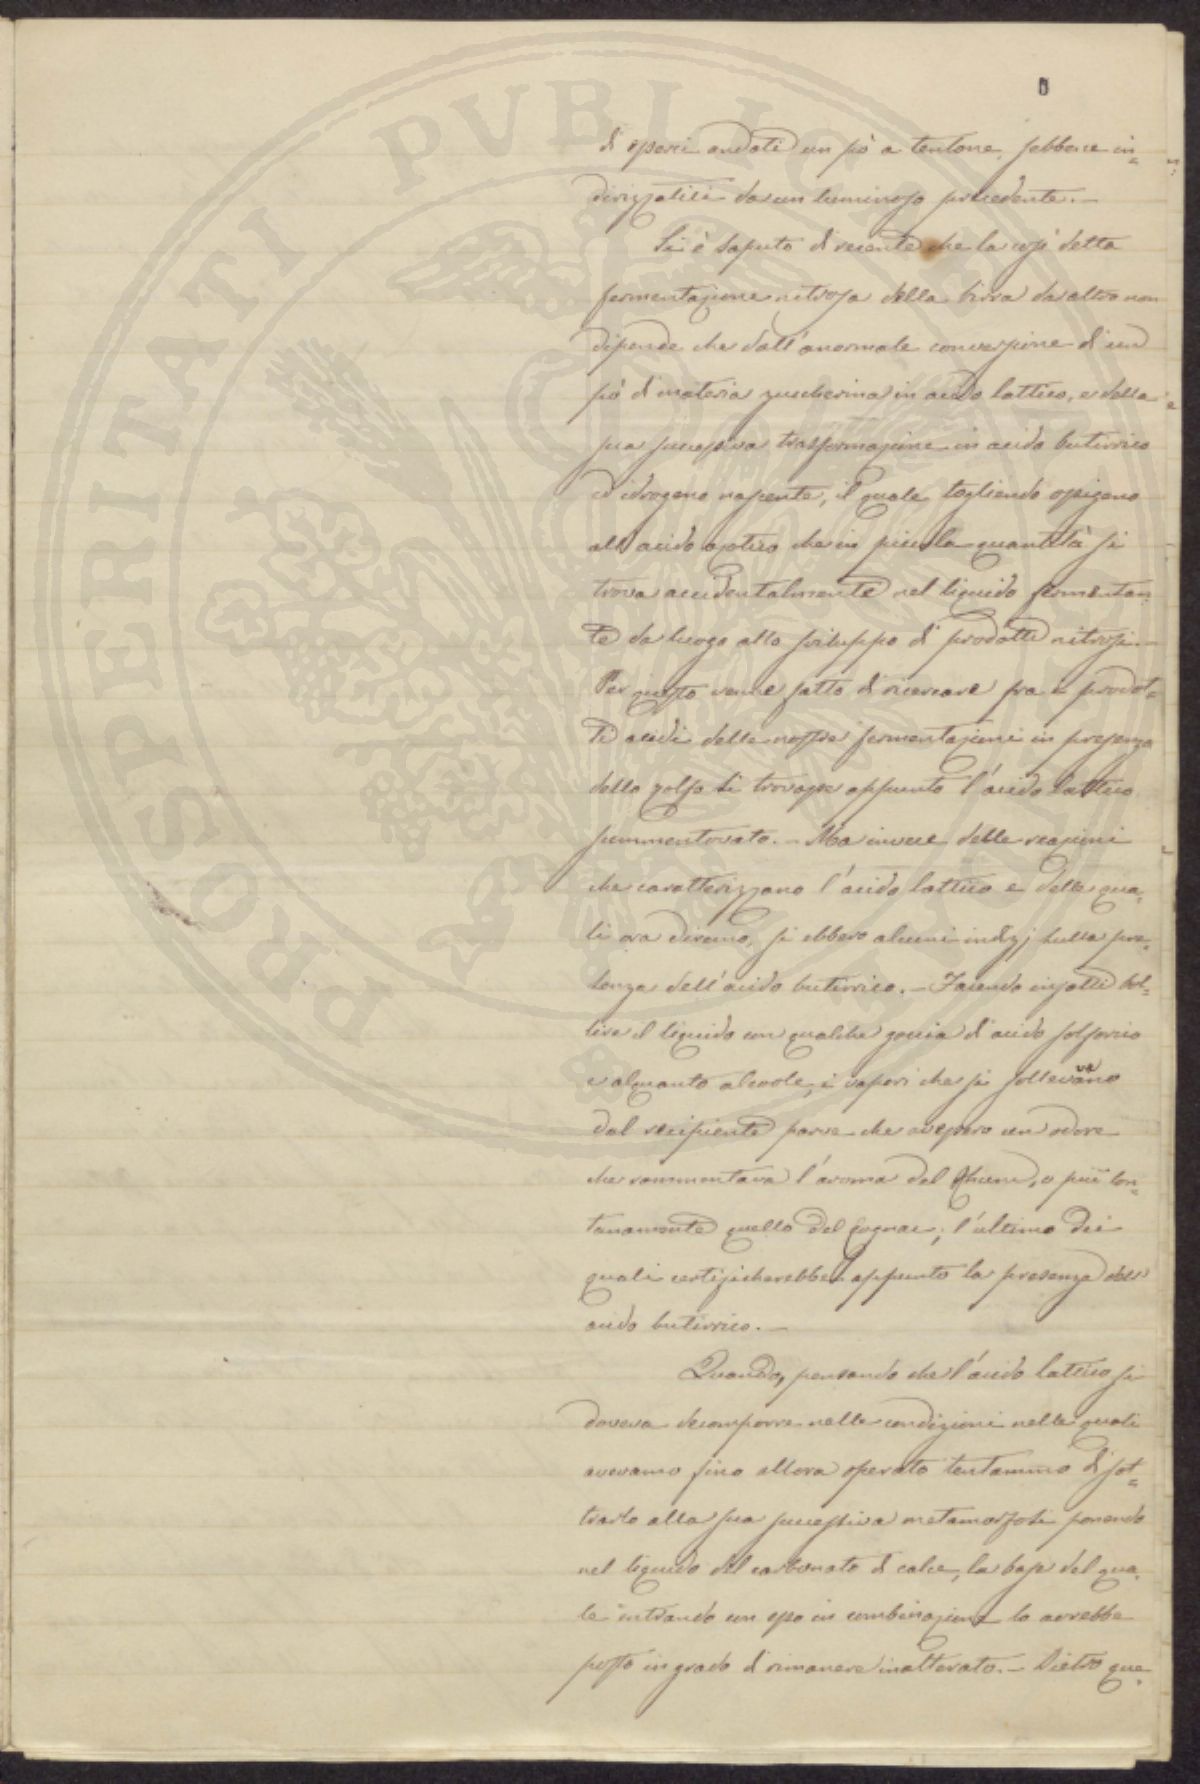 di esserci andati un pò a tentone, sebbene in=
dirizzativi da un luminoso precedente. —
Si è saputo di recente che la così detta
fermentazione nitrosa della birra da altro non
dipende che dall'anormale conversione di un
pò di materia zuccherina in acido lattico, e della
sua successiva trasformazione in acido butirrico
ed idrogeno nascente, il quale togliendo ossigeno
all'acido azotico che in piccola quantità si
trova accidentalmente nel liquido fermentan=
te da luogo allo sviluppo di prodotti nitrosi. —
Per questo venne fatto di ricercare fra i prodot=
ti acidi delle nostre fermentazioni in presenza
dello zolfo si trovasse appunto l'acido lattico
summentovato. — Ma invece delle reazioni
che caratterizzano l'acido lattico e delle qua=
li ora diremo, si ebbero alcuni indizj sulla pre=
senza dell'acido butirrico. — Facendo infatti bol=
lire il liquido con qualche goccia d'acido solforico
e alquanto alcoole, i vapori che si sollevavano
dal recipiente parve che avessero un odore
che rammentava l'aroma del Rhum, o più lon=
tanamente quello del Cognac; l'ultimo dei
quali certificherebbe appunto la presenza dell'
acido butirrico. —
Quando, pensando che l'acido lattico si
doveva decomporre nelle condizioni nelle quali
avevamo fino allora operato tentammo di sot=
trarlo alla sua successiva metamorfosi ponendo
nel liquido del carbonato di calce, la base del qua=
le entrando con esso in combinazione lo avrebbe
posto in grado di rimanere inalterato. — Dietro que=
PROSPERITATI PVBLICAE